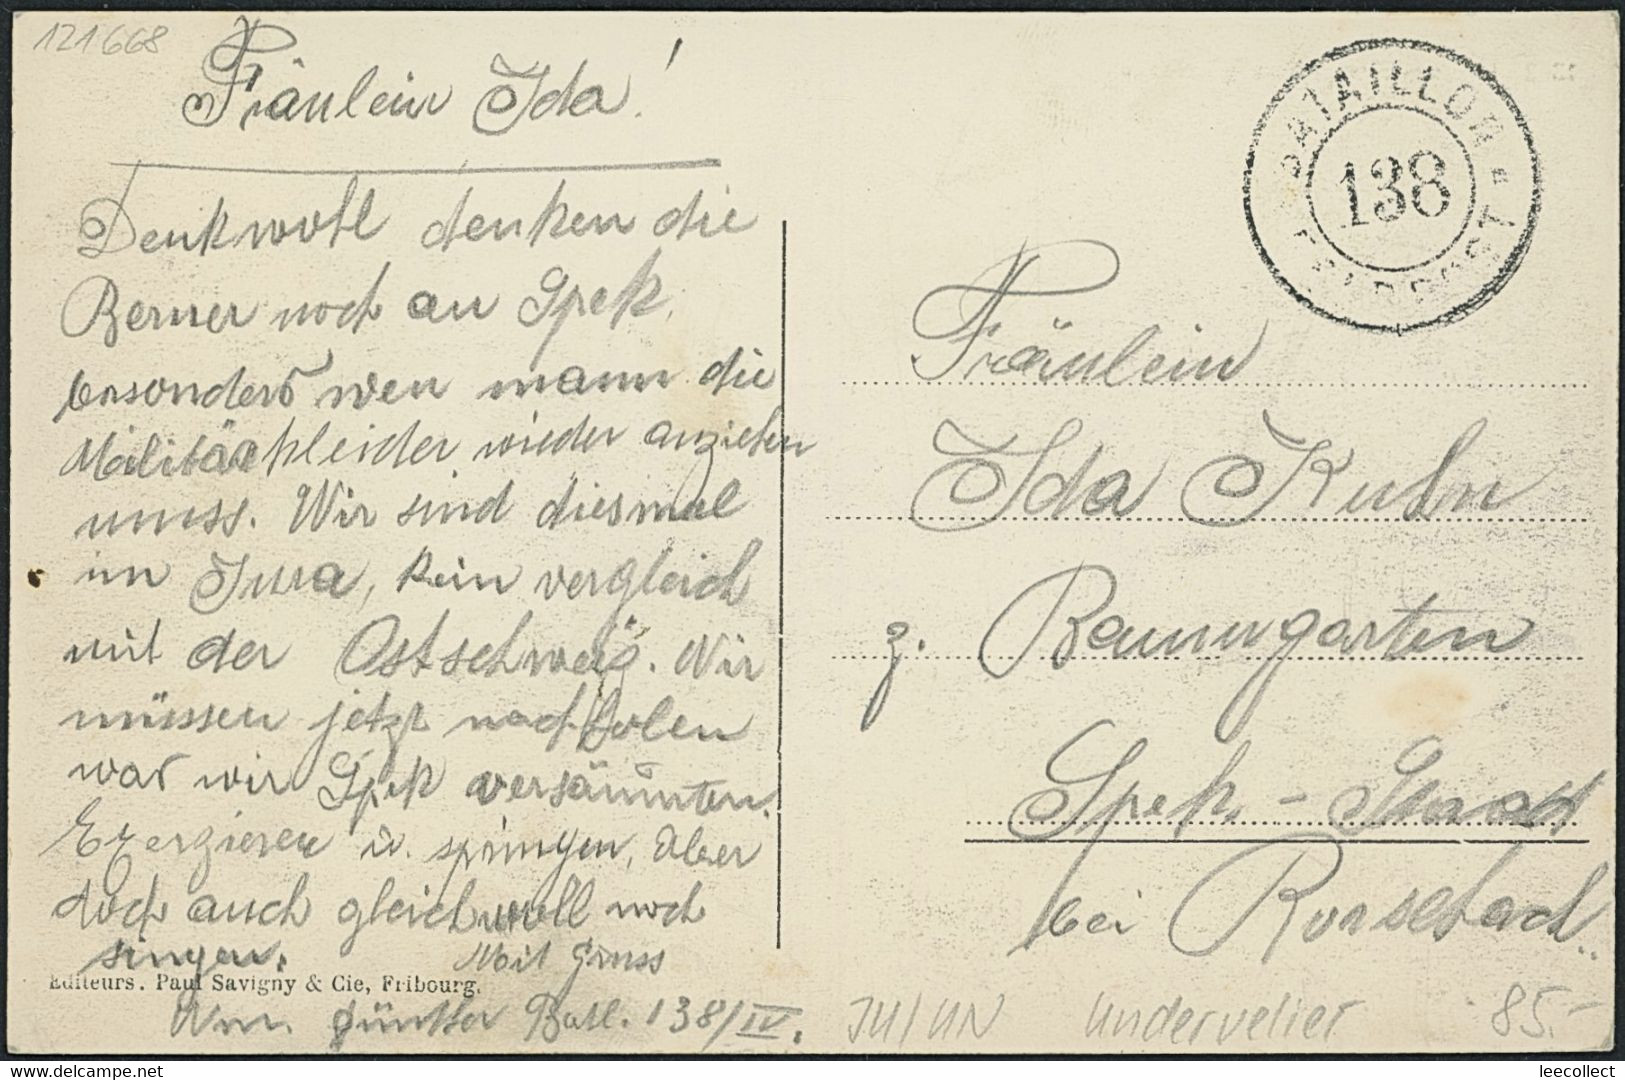 121668
Fräulein Ida!
Denkwohl denken die
Berner noch an Spek,
besonders wen mann die
Militärkleider wieder anziehen
muss. Wir sind diesmal
im Jura, kein vergleich
mit der Ostschweiz. Wir
müssen jetzt nachholen
was wir Spek versäumten.
Exerzieren u. springen, Aber
doch auch gleichwohl noch
singen.
Mit Gruss
Editeurs. Paul Savigny & Cie, Fribourg.
Wm. Günther Batl. 138/IV.
BATAILLON
138
FELDPOST
Fräulein
Ida Kuhn
z. Baumgarten
Spek - Staad
bei Rorschach.
JU/UN Undervelier 85.-
delcampe.net
leecollect